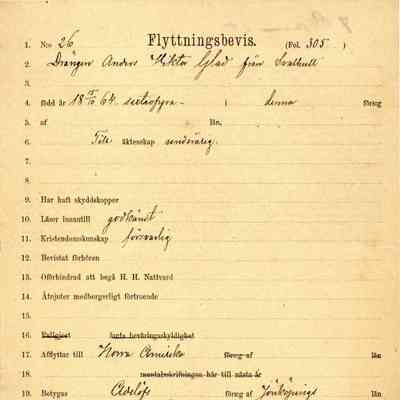 Flyttningsbevis.
1. N:o 26 (Fol. 305.)
2. Drängen Anders Viktor Glad från Svalhult
3.
4. född år 18 15/10 64. sextiofyra - i denna förs:g
5. af län,
6. Till äktenskap
7.
8.
9. Har haft skyddskoppor
10. Läser innantill godkändt
11. Kristendomskunskap försvarlig
12. Bevistat förhören
13. Oförhindrad att begå H. H. Nattvard
14. Åtnjuter medborgerligt förtroende
15.
16. Fullgjort årets beväringsskyldighet
17. Afflyttar till Norra Amerika förs:g af län
18. mantalsskrifningen här till nästa år
19. Betygas Adelöfs förs:g af Jönköpings län